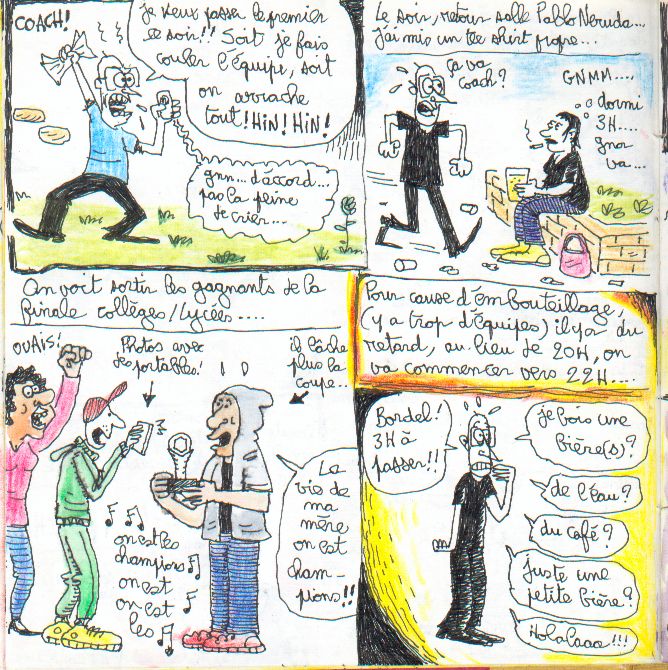 COACH!
je veux passer le premier
ce soir!! Soit je fais
couler l'équipe, soit
on arrache
tout! HiN! HiN!
gnn... d'accord...
pas la peine
de crier...
Le soir, retour salle Pablo Neruda...
j'ai mis un tee shirt propre...
ça va
coach?
GNMM....
dormi
3H....
gna
va...
On voit sortir les gagnants de la
finale collèges/lycées....
OUAIS!
Photos avec
des portables!
il lâche
plus la
coupe...
La
vie de
ma
mère
on est
cham-
pions!!
on est les
champions
on est
on est
les
Pour cause d'embouteillage,
(y a trop d'équipes) il y a du
retard, au lieu de 20H, on
va commencer vers 22H....
Bordel!
3H à
passer!!
je bois une
bière(s)?
de l'eau?
du café?
juste une
petite bière?
Holalaaa!!!